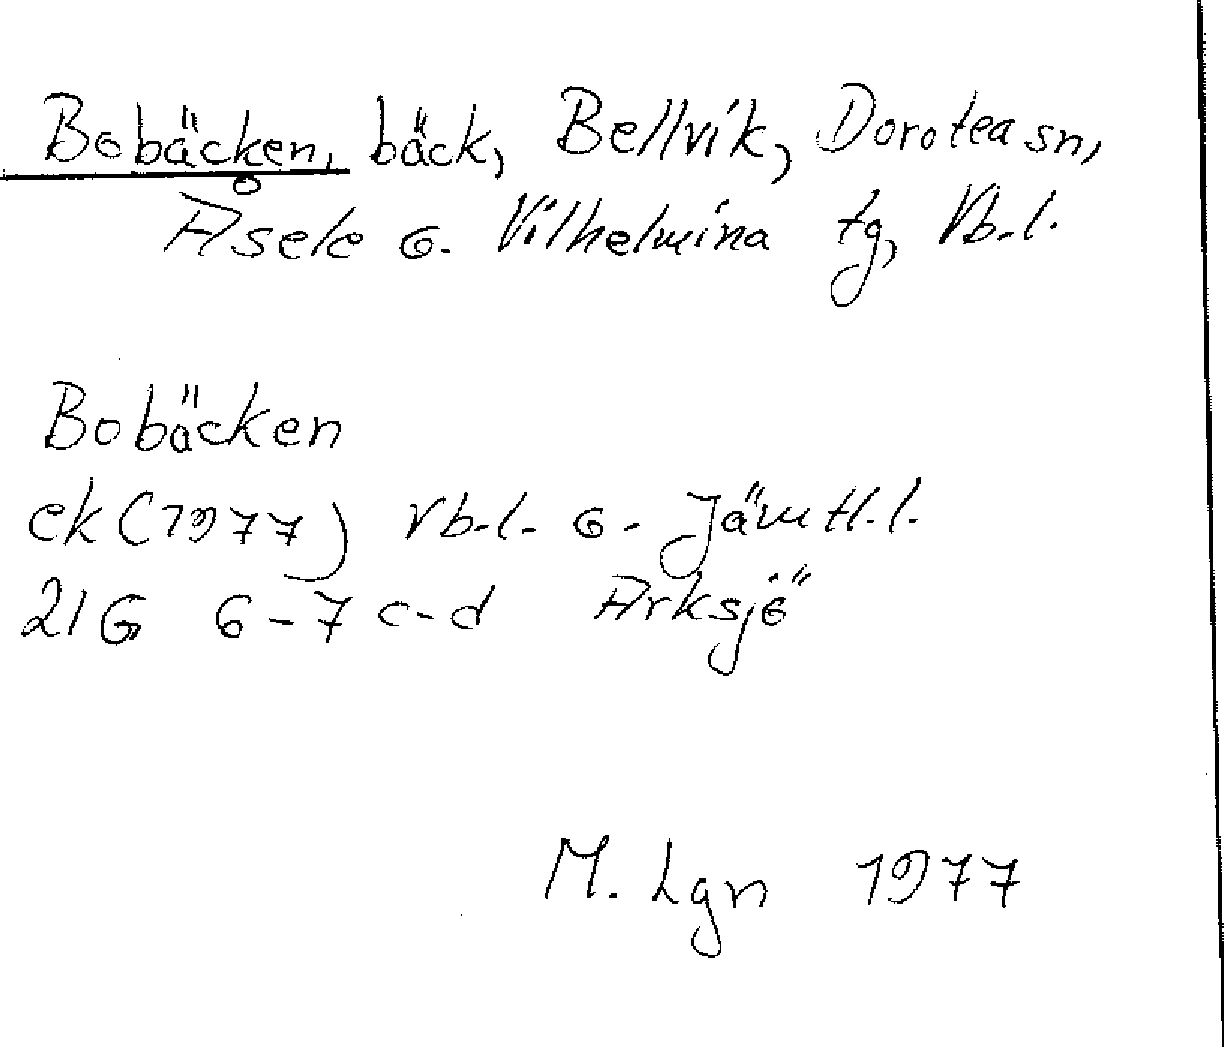 Bobäcken, bäck, Bellvik, Dorotea sn,
Åsele o. Vilhelmina tg, Vb.l.
Bobäcken
ek (1977) Vb.l. o. Jämtl.l.
21G 6-7 c-d Arksjö
M. Lgn 1977